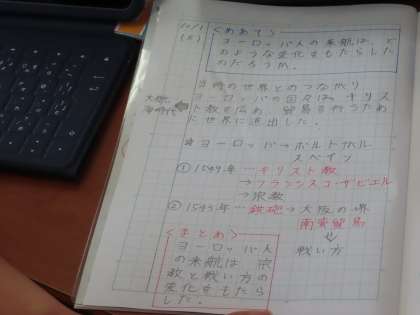 10/1
(火)
<めあて>
ヨーロッパ人の来航は、ど
のような変化をもたらした
のだろうか。
当時の世界とのつながり
ヨーロッパの国々は、キリス
ト教を広め、貿易を行うため
に世界に進出した。
大航
海時代
☆ヨーロッパ→ポルトガル
スペイン
① 1549年 ─ キリスト教
→フランシスコ・ザビエル
→宗教
② 1543年 ─ 鉄砲→大阪の堺
南蛮貿易
戦い方
<まとめ>
ヨーロッパ人
の来航は宗
教と戦い方の
変化をもたら
した。